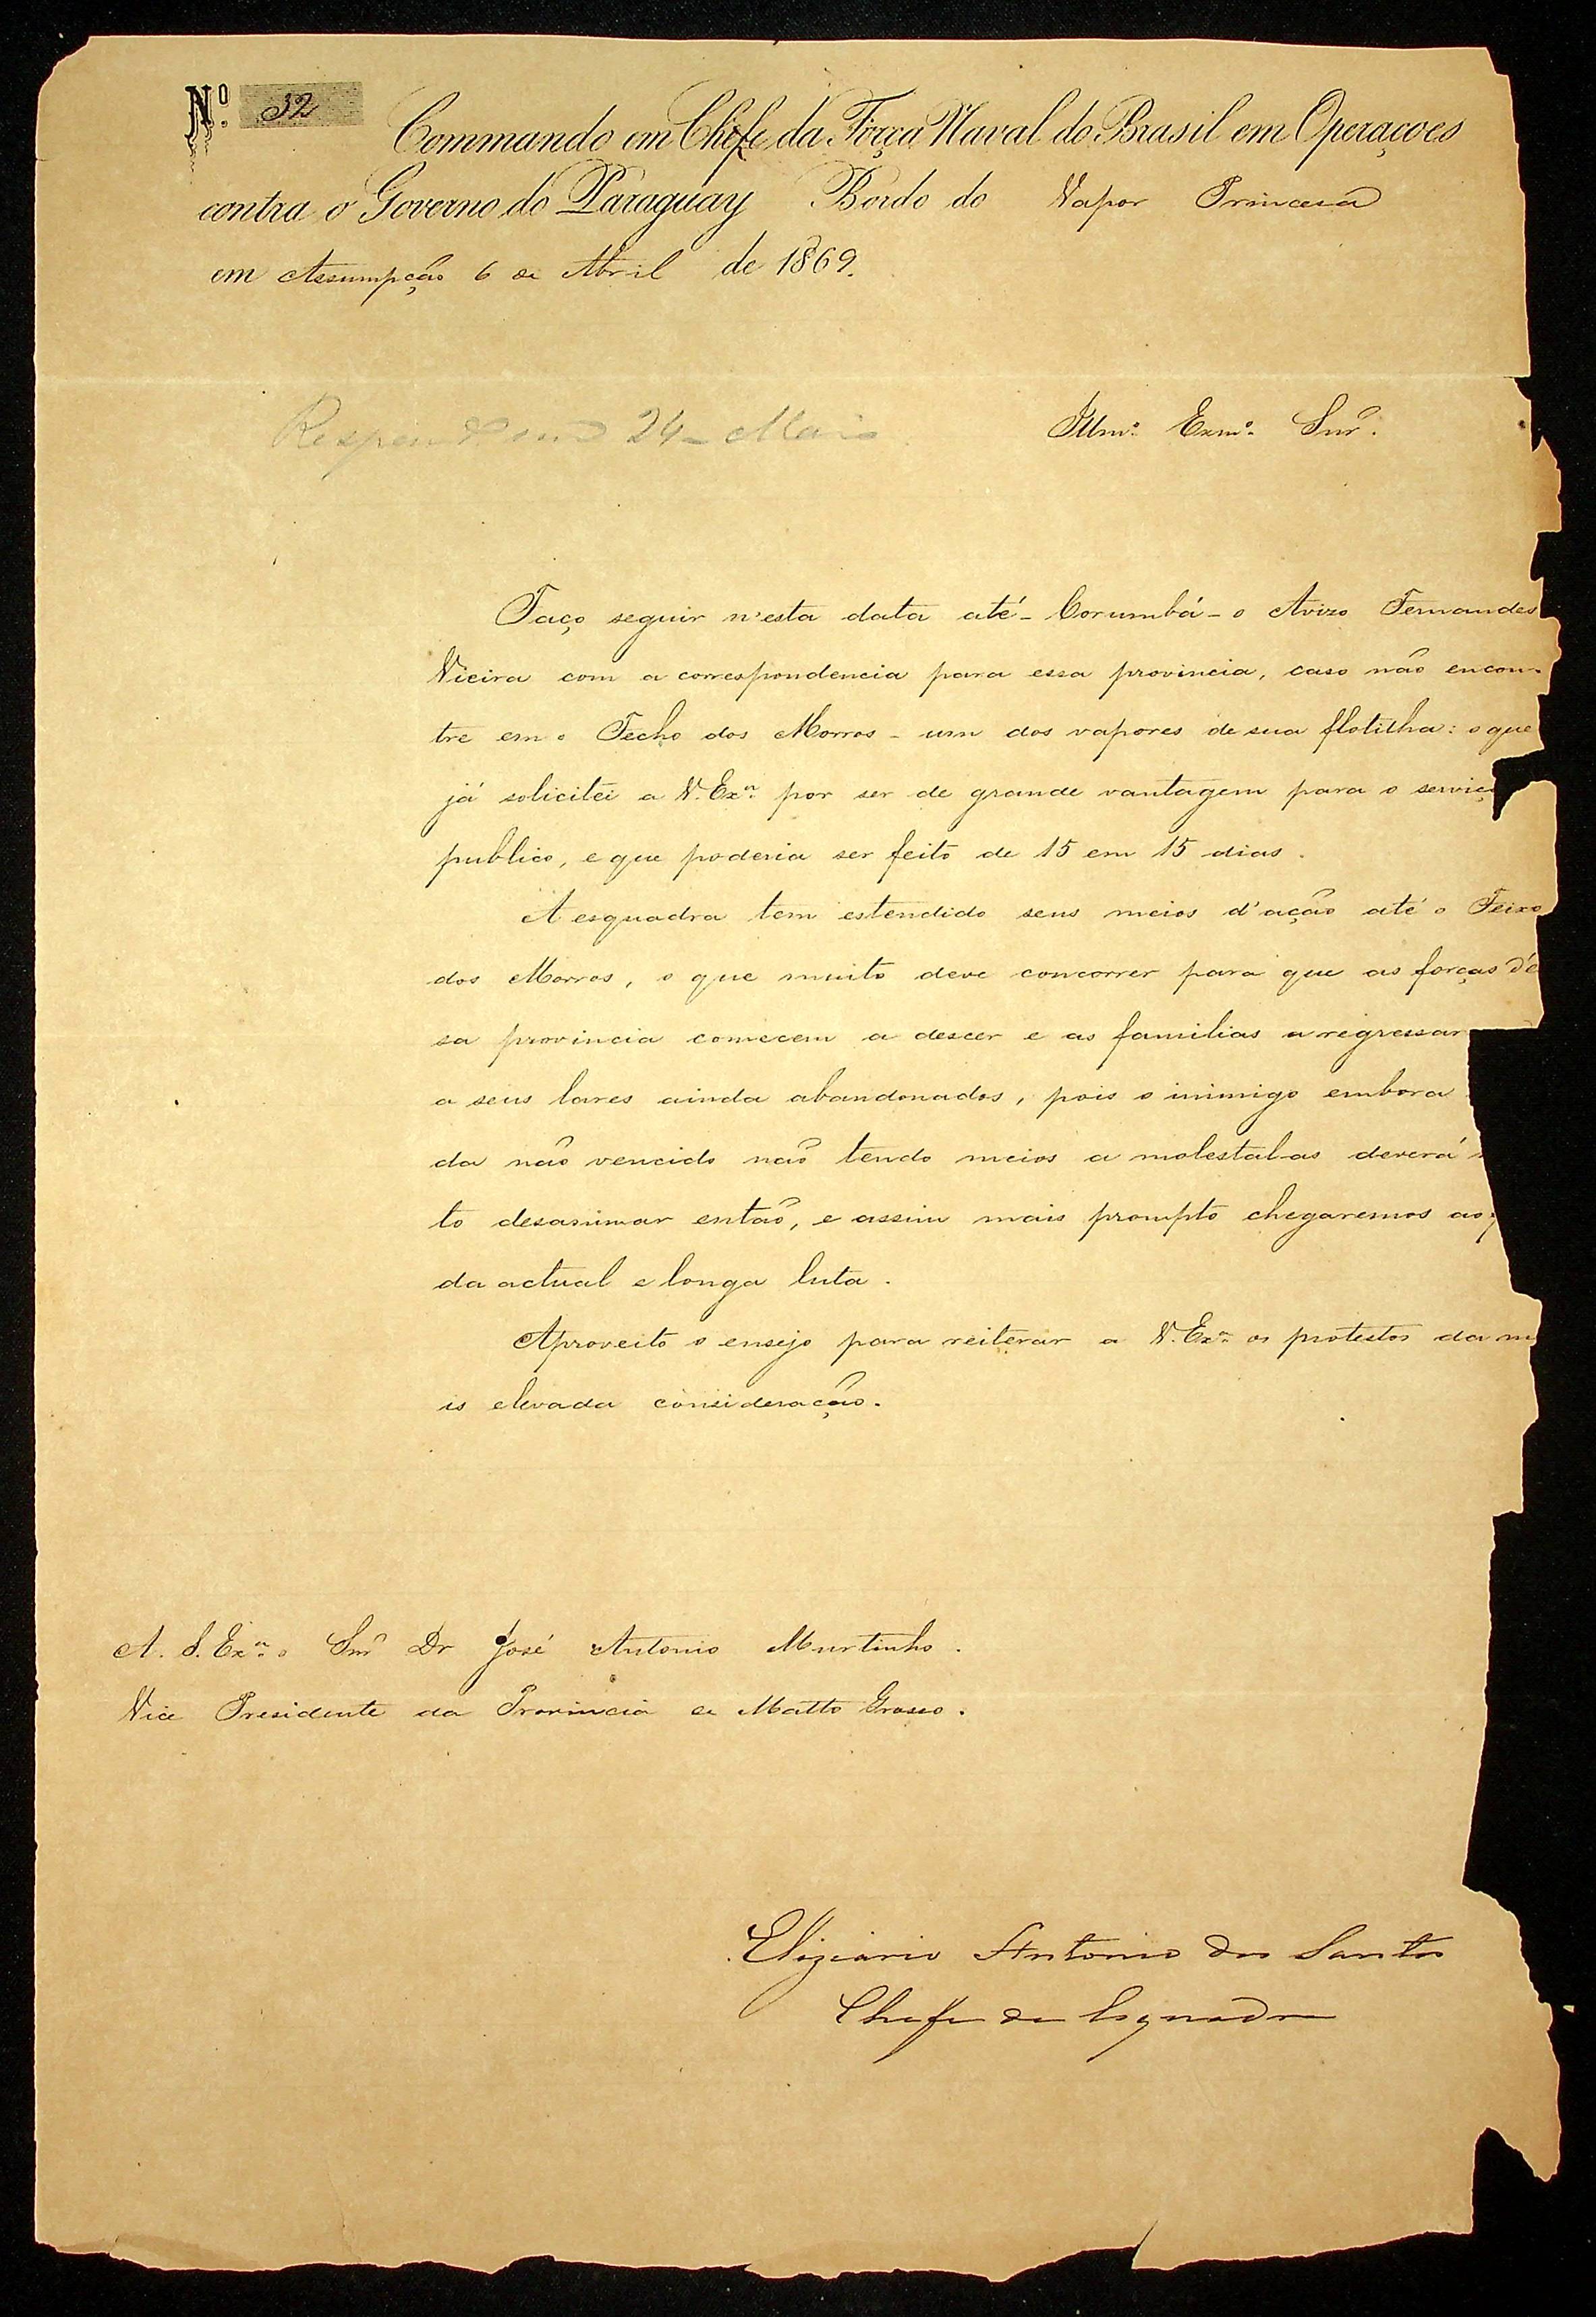 Nº 32
Commando em Chefe da Força Naval do Brasil em Operaçoes
contra o Governo do Paraguay Bordo do Vapor Princesa
em Assumpção 6 de Abril de 1869.
24 - Maio
Illmº Exmº Snr.
Faço seguir n'esta data até - Corumbá - o Avizo Fernandes
Vieira com a correspondencia para essa provincia, caso não encon-
tre em o Fecho dos Morros - um dos vapores de sua flotilha: o que
já solicitei a V. Exª por ser de grande vantagem para o serviç
publico, e que poderia ser feito de 15 em 15 dias.
A esquadra tem estendido seus meios d'ação até o Feixo
dos Morros, o que muito deve concorrer para que as forças d'e
sa provincia comecem a descer e as familias a regressar
a seus lares ainda abandonados, pois o inimigo embora
da não vencido não tendo meios a molestal-as deverá
to desanimar então, e assim mais prompto chegaremos ao
da actual e longa luta.
Aproveito o ensejo para reiterar a V. Exª os protestos da m
is elevada consideração.
A. S. Exª o Snr Dr José Antonio Murtinho.
Vice Presidente da Provincia de Matto Grosso.
Elizíario Antonio dos Santos
Chefe de Esquadra